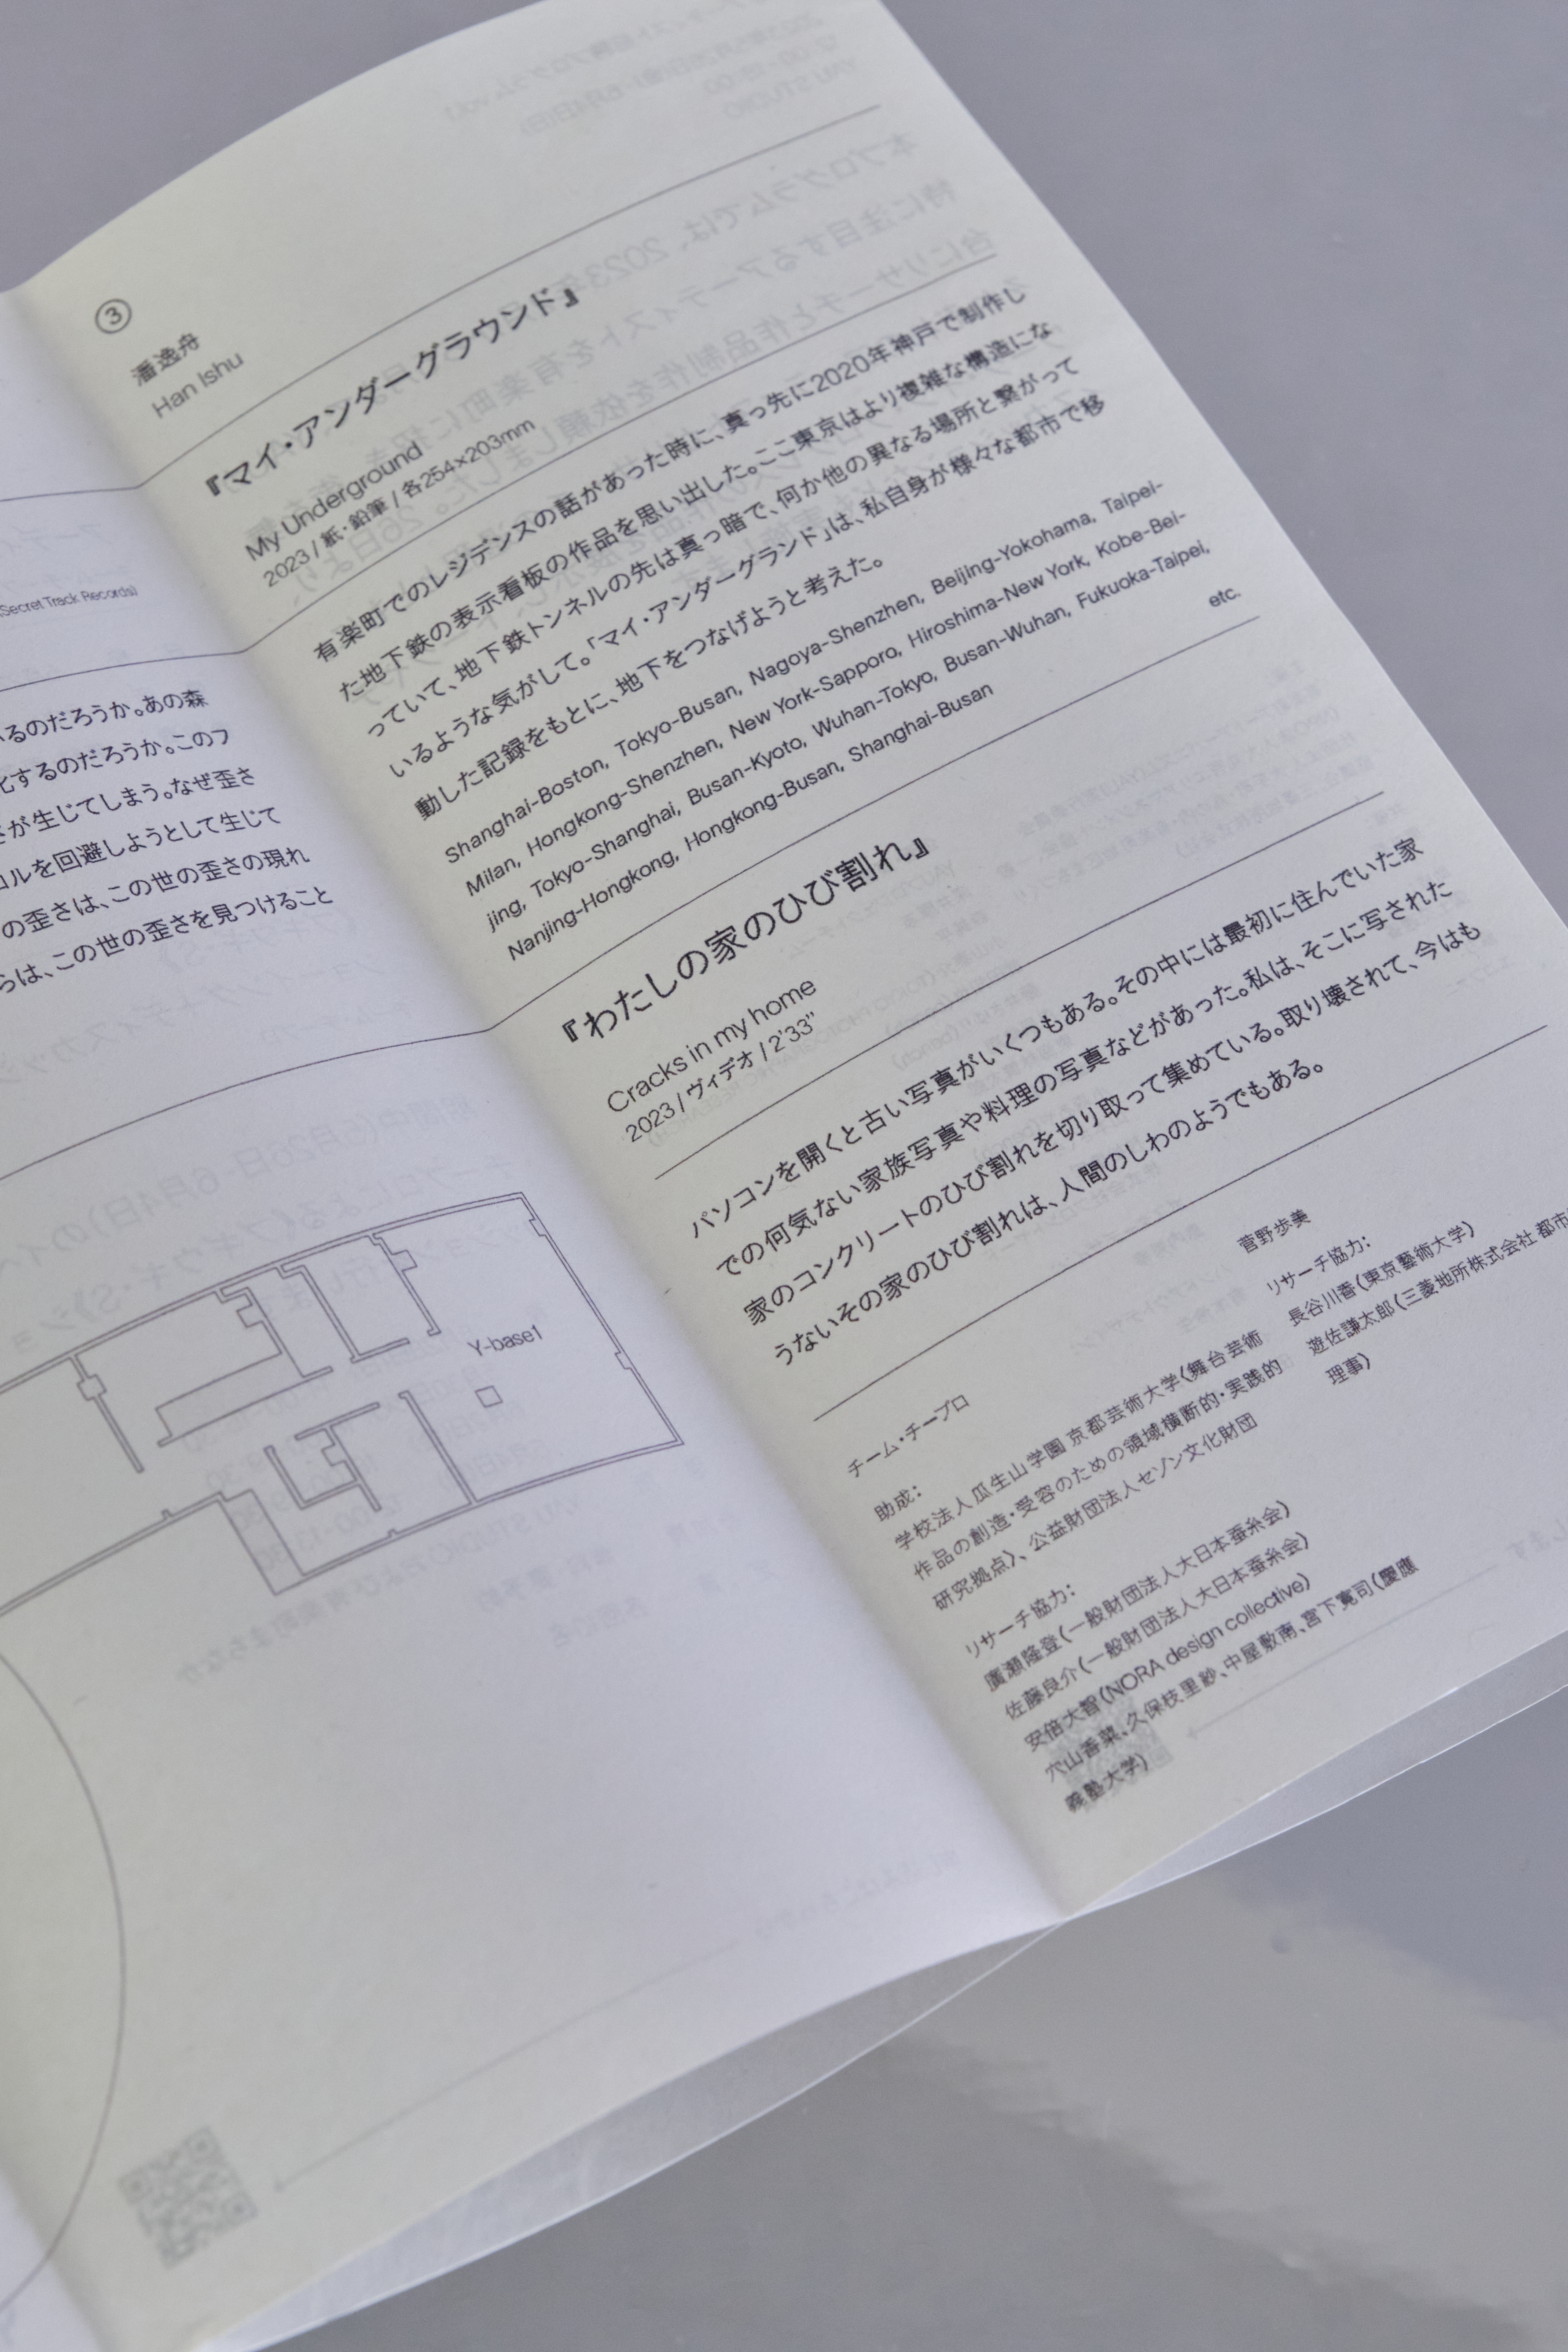 (Secret Track Records)
いるのだろうか。あの森
化するのだろうか。このフ
が生じてしまう。なぜ歪さ
ロルを回避しようとして生じて
の歪さは、この世の歪さの現れ
らは、この世の歪さを見つけること
Y-base1
③
潘逸舟
Han Ishu
『マイ・アンダーグラウンド』
My Underground
2023 / 紙・鉛筆 / 各254×203mm
有楽町でのレジデンスの話があった時に、真っ先に2020年神戸で制作し
た地下鉄の表示看板の作品を思い出した。ここ東京はより複雑な構造にな
っていて、地下鉄トンネルの先は真っ暗で、何か他の異なる場所と繋がって
いるような気がして。「マイ・アンダーグランド」は、私自身が様々な都市で移
動した記録をもとに、地下をつなげようと考えた。
Shanghai-Boston, Tokyo-Busan, Nagoya-Shenzhen, Beijing-Yokohama, Taipei-
Milan, Hongkong-Shenzhen, New York-Sapporo, Hiroshima-New York, Kobe-Bei-
jing, Tokyo-Shanghai, Busan-Kyoto, Wuhan-Tokyo, Busan-Wuhan, Fukuoka-Taipei,
Nanjing-Hongkong, Hongkong-Busan, Shanghai-Busan etc.
『わたしの家のひび割れ』
Cracks in my home
2023 / ヴィデオ / 2'33"
パソコンを開くと古い写真がいくつもある。その中には最初に住んでいた家
での何気ない家族写真や料理の写真などがあった。私は、そこに写された
家のコンクリートのひび割れを切り取って集めている。取り壊されて、今はも
うないその家のひび割れは、人間のしわのようでもある。
チーム・チープロ
助成：
学校法人瓜生山学園 京都芸術大学〈舞台芸術
作品の創造・受容のための領域横断的・実践的
研究拠点〉、公益財団法人セゾン文化財団
リサーチ協力：
廣瀬隆登（一般財団法人大日本蚕糸会）
佐藤良介（一般財団法人大日本蚕糸会）
安倍大智（NORA design collective）
穴山香菜、久保枝里紗、中屋敷南、宮下寛司（慶應
義塾大学）
菅野歩美
リサーチ協力：
長谷川香（東京藝術大学）
遊佐謙太郎（三菱地所株式会社 都市
理事）